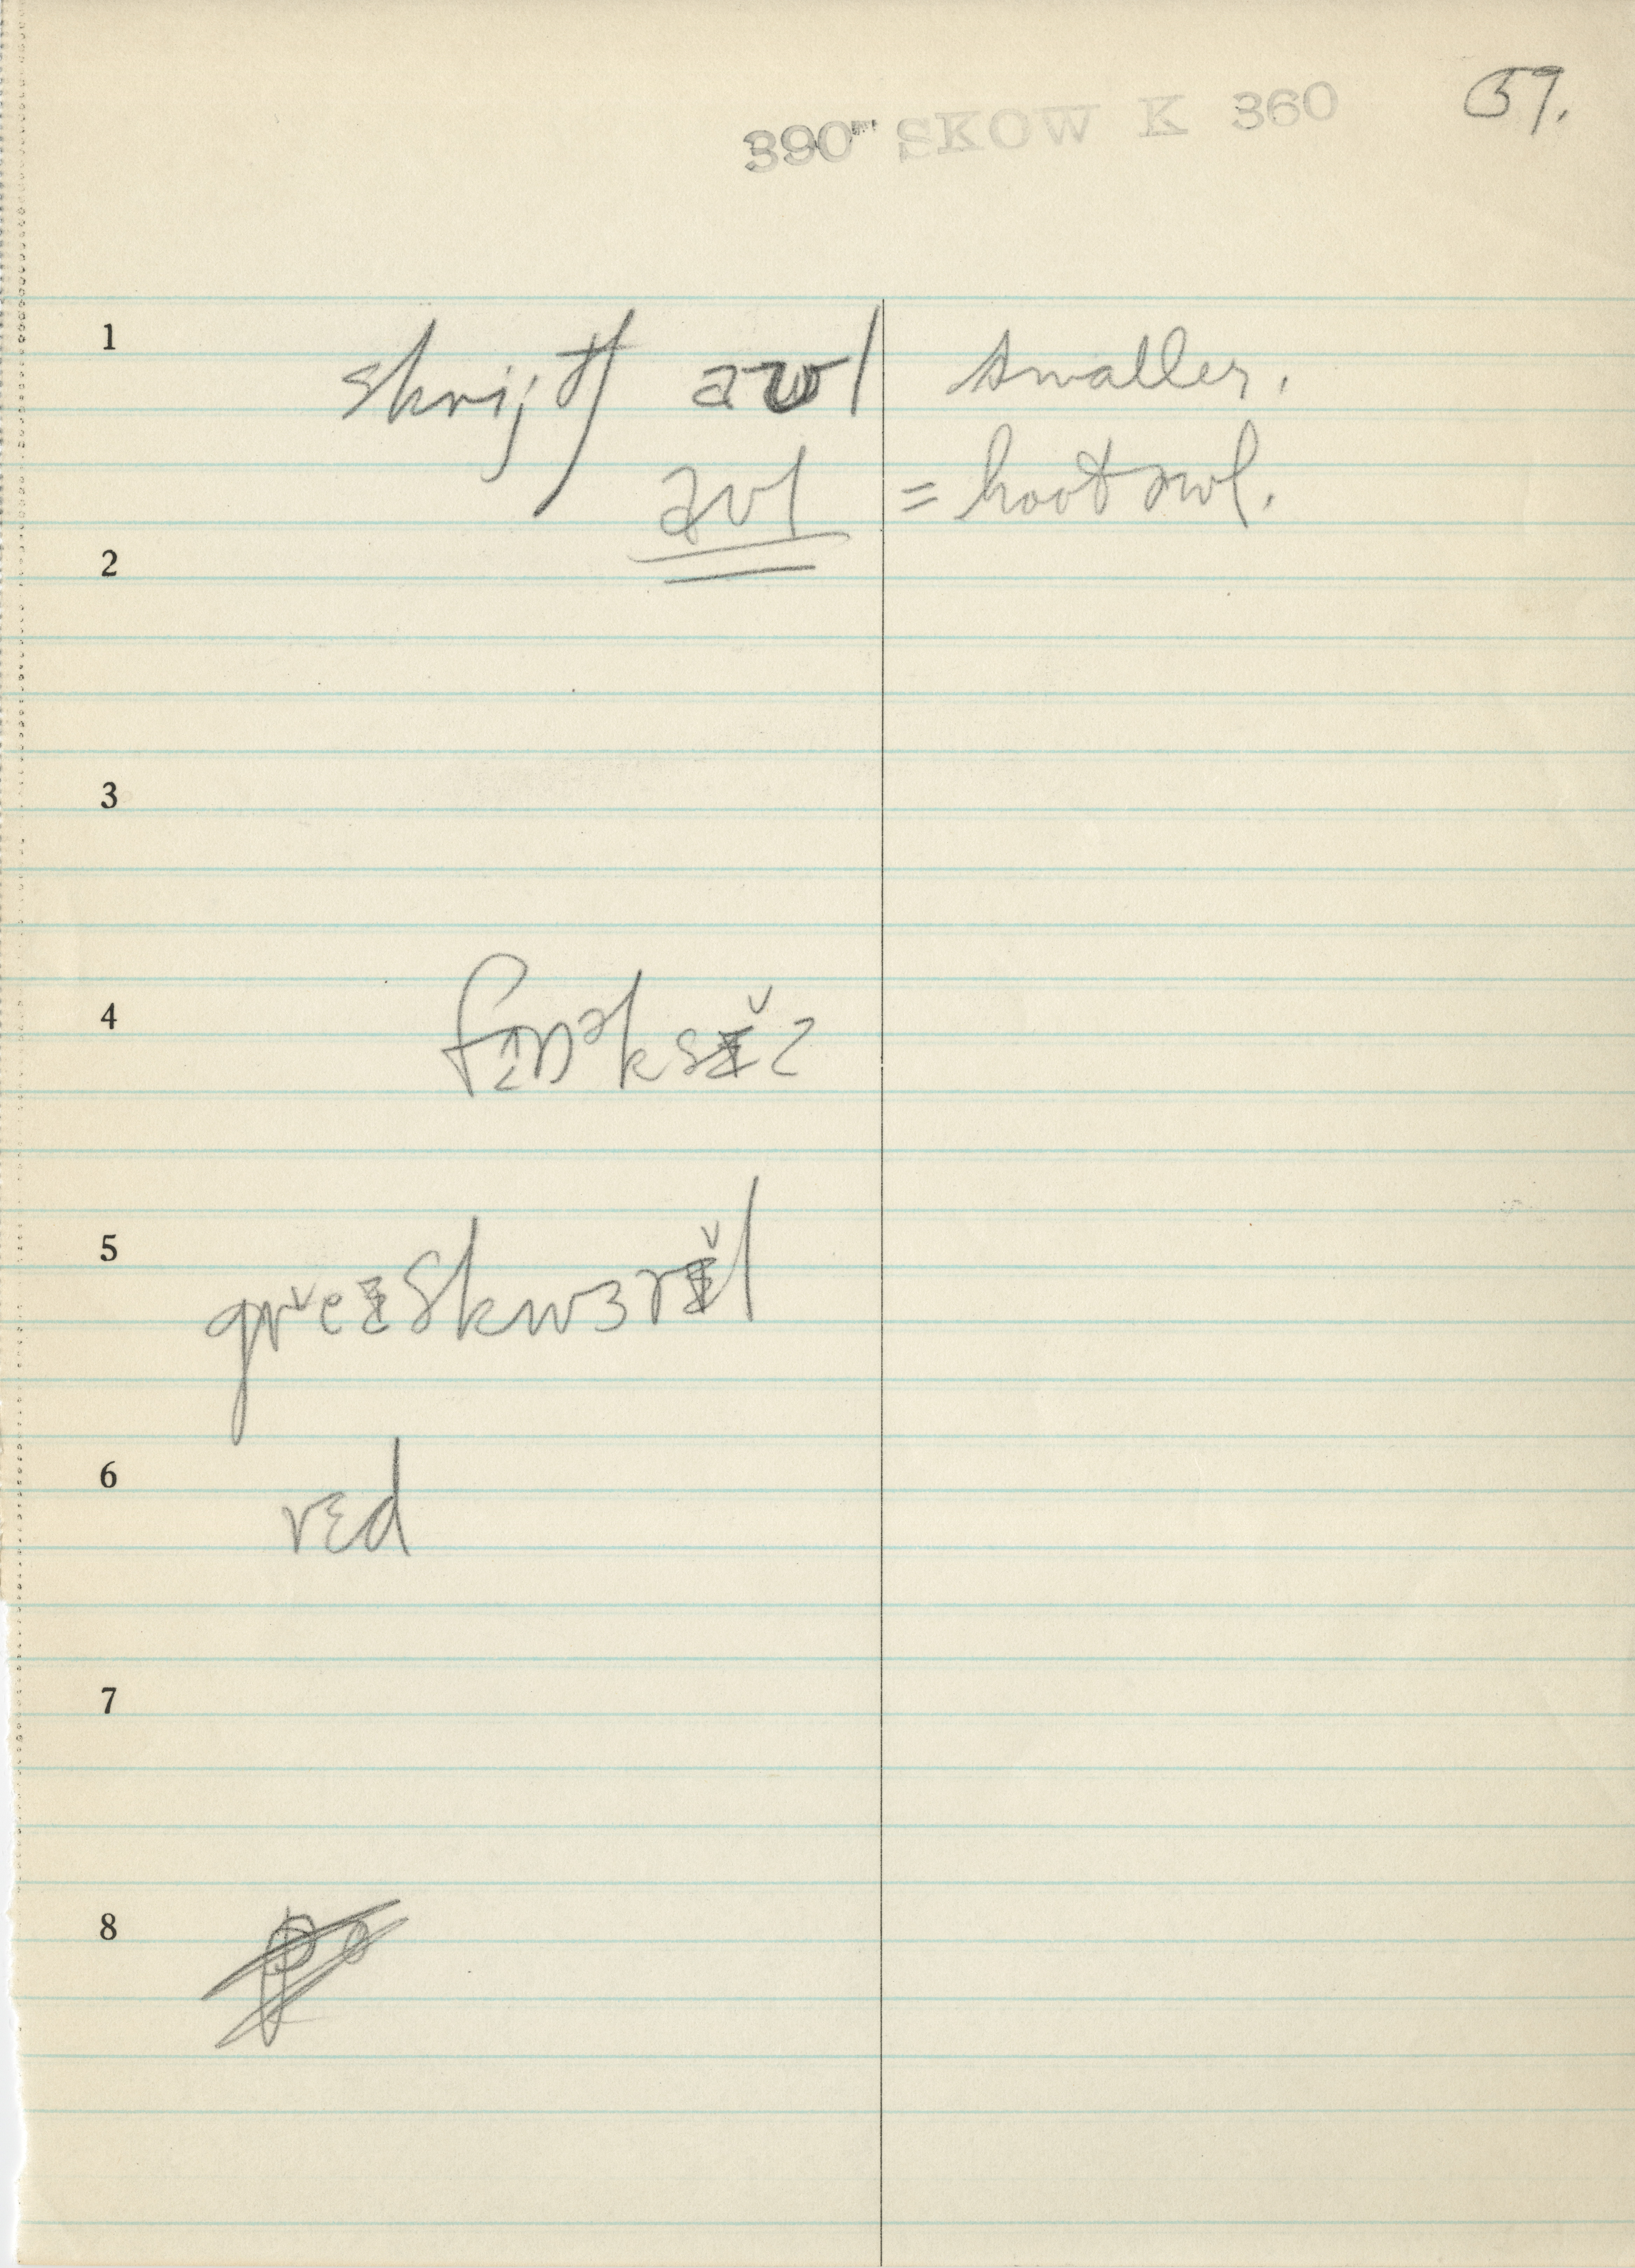 390 SKOW K 360 57.
1 skrijtʃ aʊl smaller.
aʊl = hoot owl.
2
3
4 fɪnᵊksɪ̌z
5 gřeɪskwɜrɪ̌l
6 rɛd
7
8